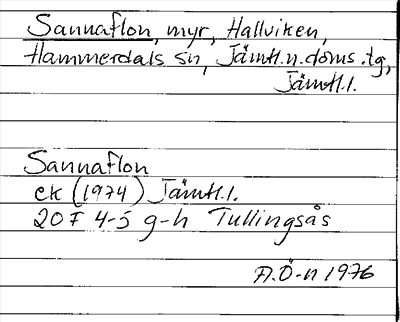 Sannaflon, myr, Hallviken,
Hammerdals sn, Jämtl.n.doms.tg,
Jämtl.l.
Sannaflon
ek (1974) Jämtl.l.
20F 4-5 g-h Tullingsås
A.Ö-n 1976